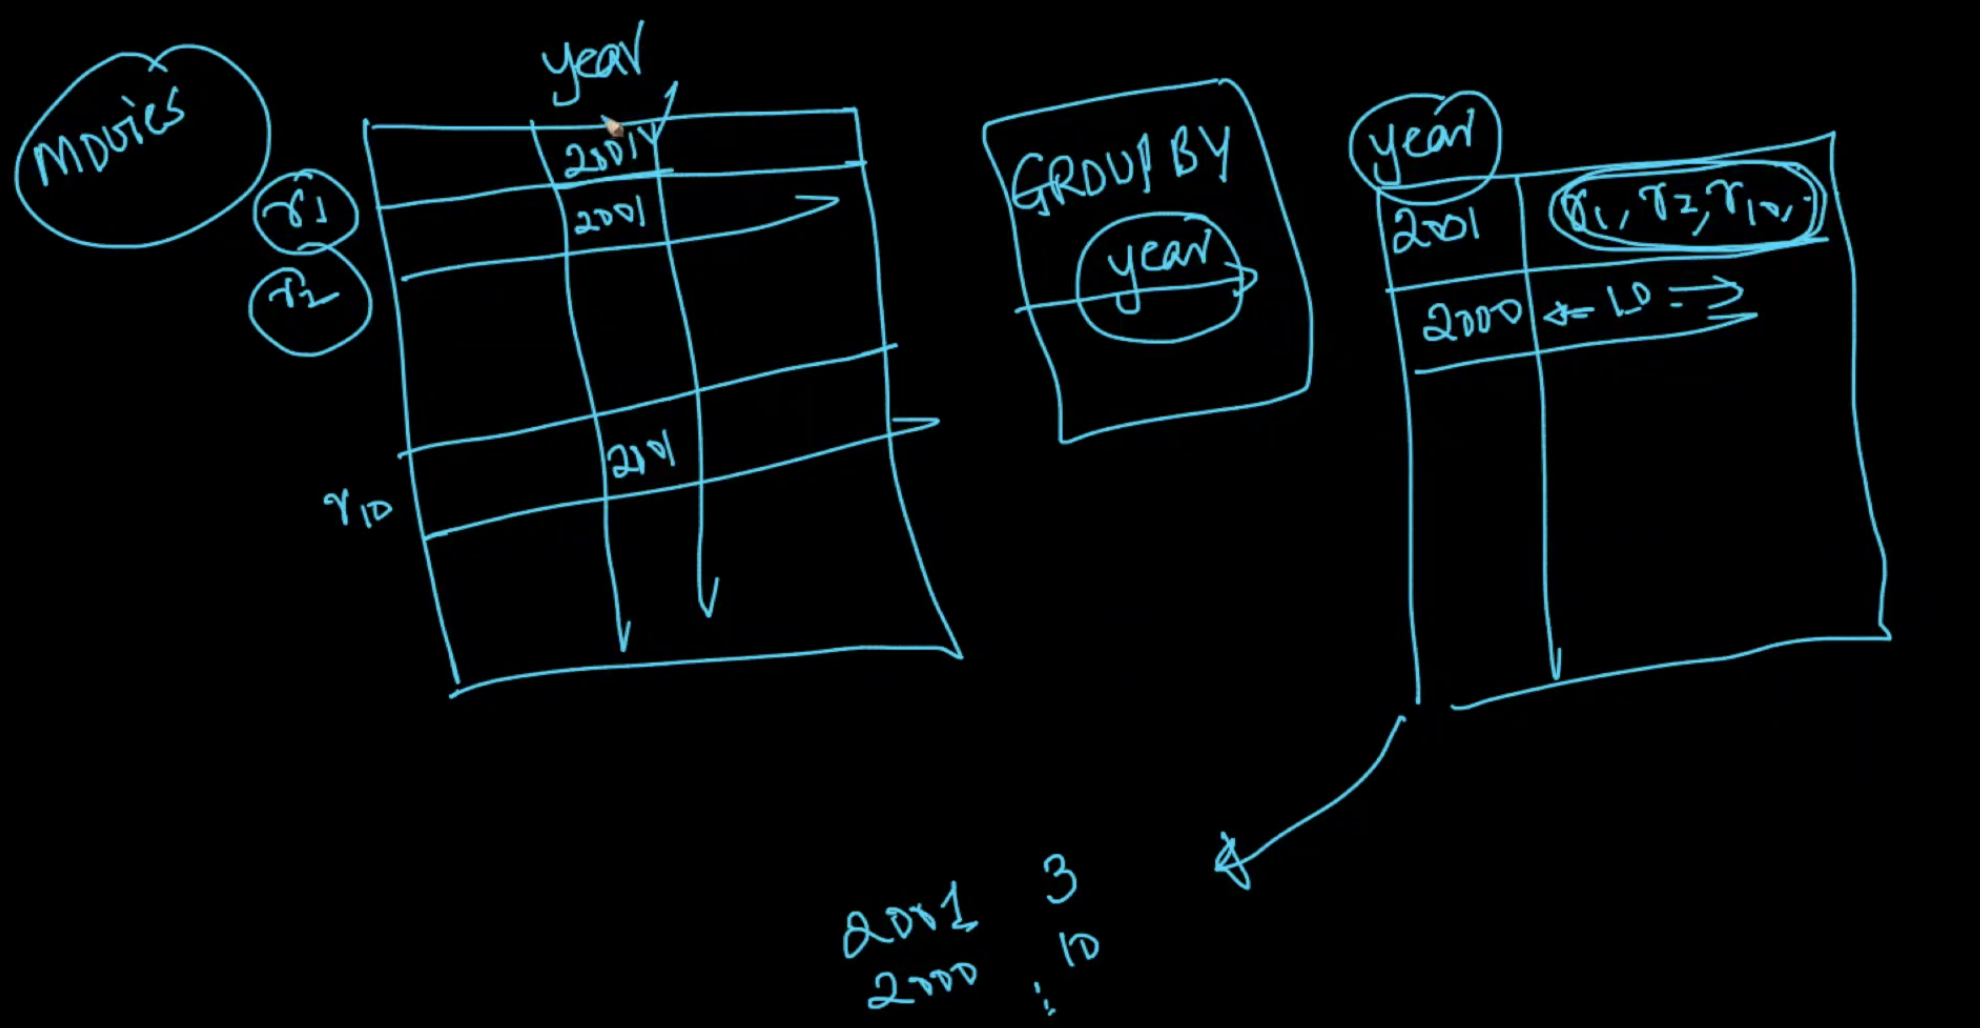 movies
year
2001
r1
2001
r2
2001
r10
GROUP BY
year
year
2001 r1, r2, r10,
2000 10
2001 3
2000 10